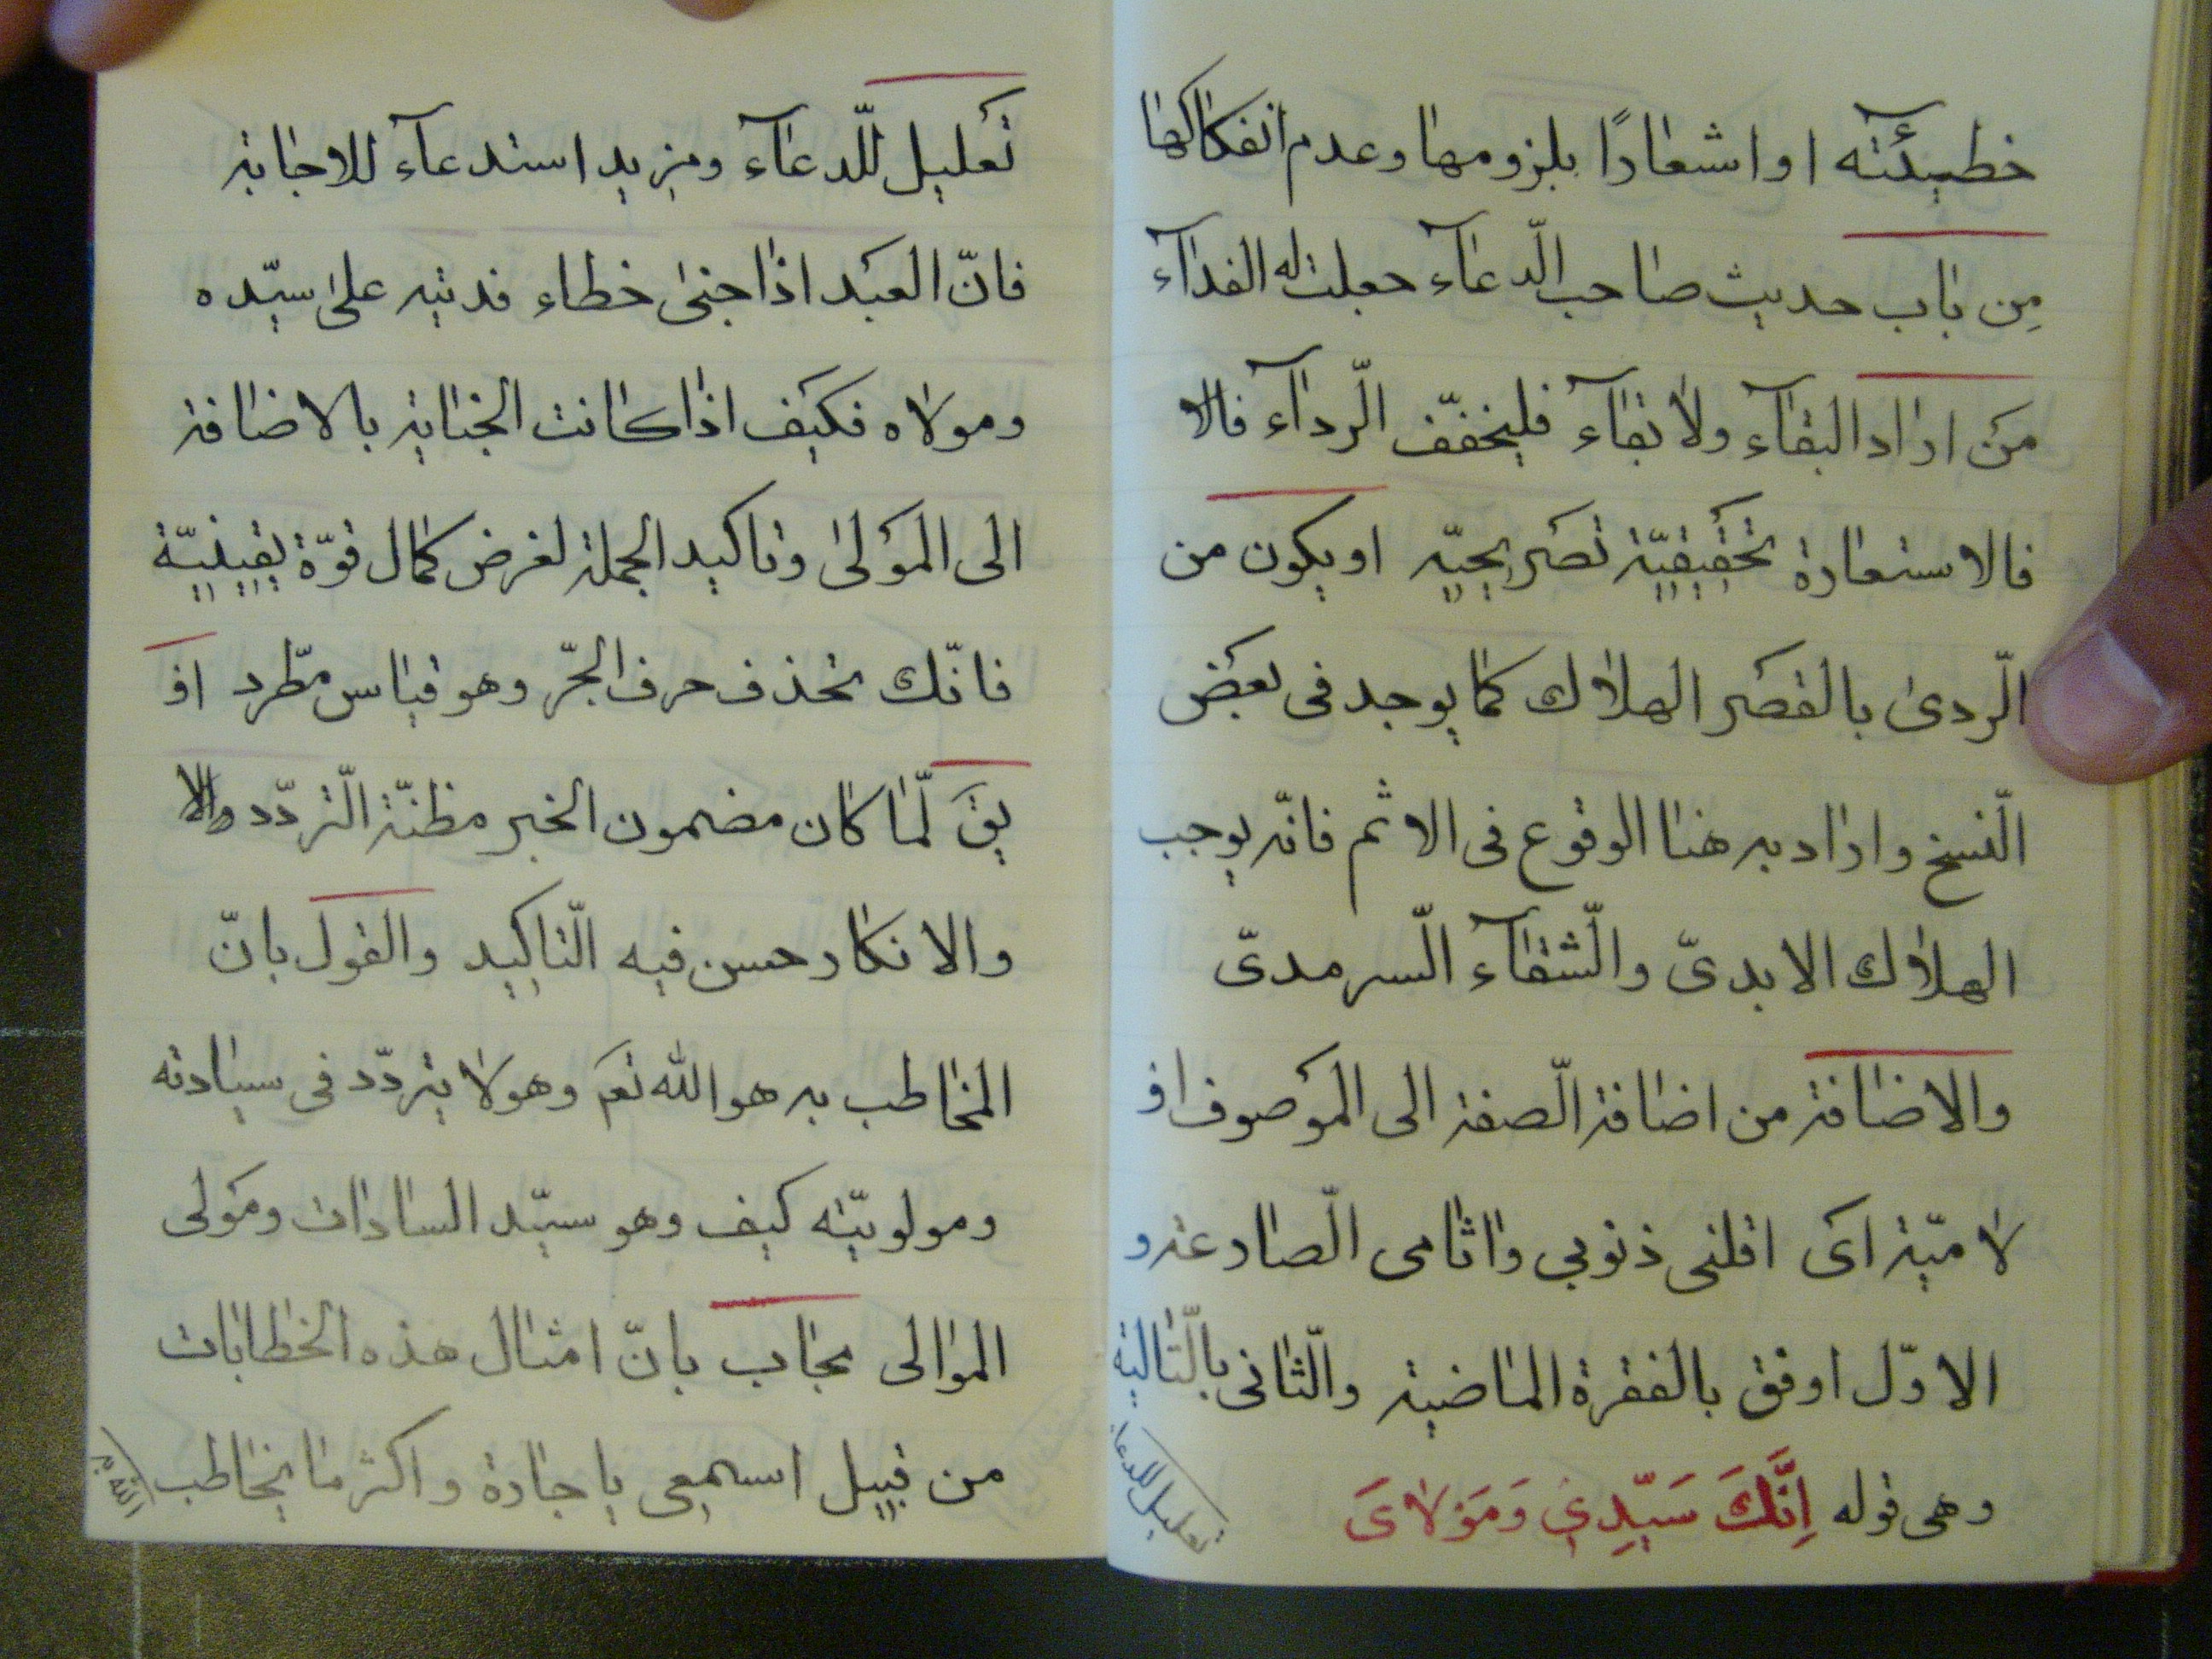 خطيئته او اشعارًا بلزومها وعدم انفكاكها
مِن باب حديث صاحب الدّعآء جعلت له الفدآء
مَن اراد البقآء ولا بقآء فليخفّف الرّدآء فالا
فالاستعارة تحقيقيّة تصريحيّه او يكون من
الرّدى بالقصر الهلاك كما يوجد فى بعض
النّسخ واراد به هنا الوقوع فى الاثم فانّه يوجب
الهلاك الابدىّ والشّقآء السّرمدىّ
والاضافة من اضافة الصّفة الى الموصوف او
لاميّة اى اقلنى ذنوبي واثامى الصّادعة و
الاوّل اوفق بالفقرة الماضية والثّانى بالتّالية
وهى قوله اِنَّكَ سَيّدِي وَمَوْلاىَ
تعليل للدعا
تعليل للدّعآء ومزيد استدعآء للاجابة
فانّ العبد اذا جنى خطاء فديته على سيّده
ومولاه فكيف اذا كانت الجناية بالاضافة
الى المولى وتاكيد الجملة لغرض كمال قوّة يقينيّة
فانّك تحذف حرف الجرّ وهو قياس مطّرد او
يقَ لمّا كان مضمون الخبر مظنّة التّردّد والا
والانكار حسن فيه التّاكيد والقول بانّ
المخاطب به هو الله تعَ وهو لا يتردّد فى سيادته
ومولويّته كيف وهو سيّد السادات ومولى
الموالى يجاب بانّ امثال هذه الخطابات
من قبيل اسمعى يا جارة واكثر ما يخاطب